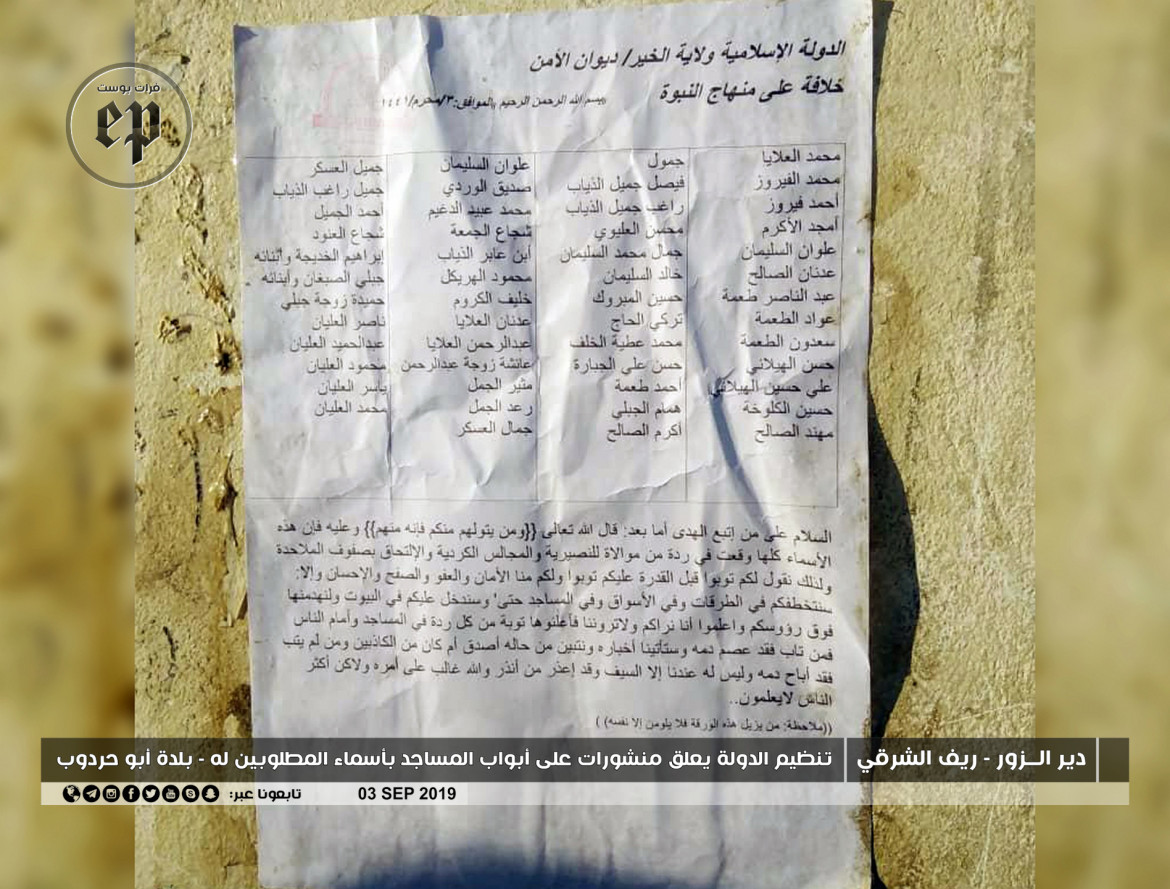 فرات بوست
ep
الدولة الإسلامية ولاية الخير/ ديوان الأمن
خلافة على منهاج النبوة
بسم الله الرحمن الرحيم الموافق:٣/محرم/١٤٤١
محمد العلايا جمول علوان السليمان جميل العسكر
محمد الفيروز فيصل جميل الذياب صديق الوردي جميل راغب الذياب
أحمد فيروز راغب جميل الذياب محمد عبيد الدغيم أحمد الجميل
أمجد الأكرم محسن العليوي شجاع الجمعة شجاع العنود
علوان السليمان جمال محمد السليمان أبن عابر الذياب إبراهيم الخديجة وأبنائه
عدنان الصالح خالد السليمان محمود الهريكل جبلي الصبغان وأبنائه
عبد الناصر طعمة حسين المبروك خليف الكروم حميدة زوجة جبلي
عواد الطعمة تركي الحاج عدنان العلايا ناصر العليان
سعدون الطعمة محمد عطية الخلف عبدالرحمن العلايا عبدالحميد العليان
حسن الهيلاني حسن علي الجبارة عائشة زوجة عبدالرحمن محمود العليان
علي حسين الهيلاني أحمد طعمة مثير الجمل ياسر العليان
حسين الكلوخة همام الجبلي رعد الجمل محمد العليان
مهند الصالح أكرم الصالح جمال العسكر
السلام على من إتبع الهدى أما بعد: قال الله تعالى {{ومن يتولهم منكم فإنه منهم}} وعليه فإن هذه
الأسماء كلها وقعت في ردة من موالاة للنصيرية والمجالس الكردية والإلتحاق بصفوف الملاحدة
ولذلك نقول لكم توبوا قبل القدرة عليكم توبوا ولكم منا الأمان والعفو والصفح والإحسان وإلا:
سنتخطفكم في الطرقات وفي الأسواق وفي المساجد حتى' وسندخل عليكم في البيوت ولنهدمنها
فوق رؤوسكم واعلموا أنا نراكم ولاتروننا فأعلنوها توبة من كل ردة في المساجد وأمام الناس
فمن تاب فقد عصم دمه وستأتينا أخباره ونتبين من حاله أصدق أم كان من الكاذبين ومن لم يتب
فقد أباح دمه وليس له عندنا إلا السيف وقد إعذر من أنذر والله غالب على أمره ولاكن أكثر
الناس لايعلمون..
((ملاحظة: من يزيل هذه الورقة فلا يلومن إلا نفسه))
دير الـــزور - ريف الشرقي | تنظيم الدولة يعلق منشورات على أبواب المساجد بأسماء المطلوبين له - بلدة أبو حردوب
03 SEP 2019 تابعونا عبر: